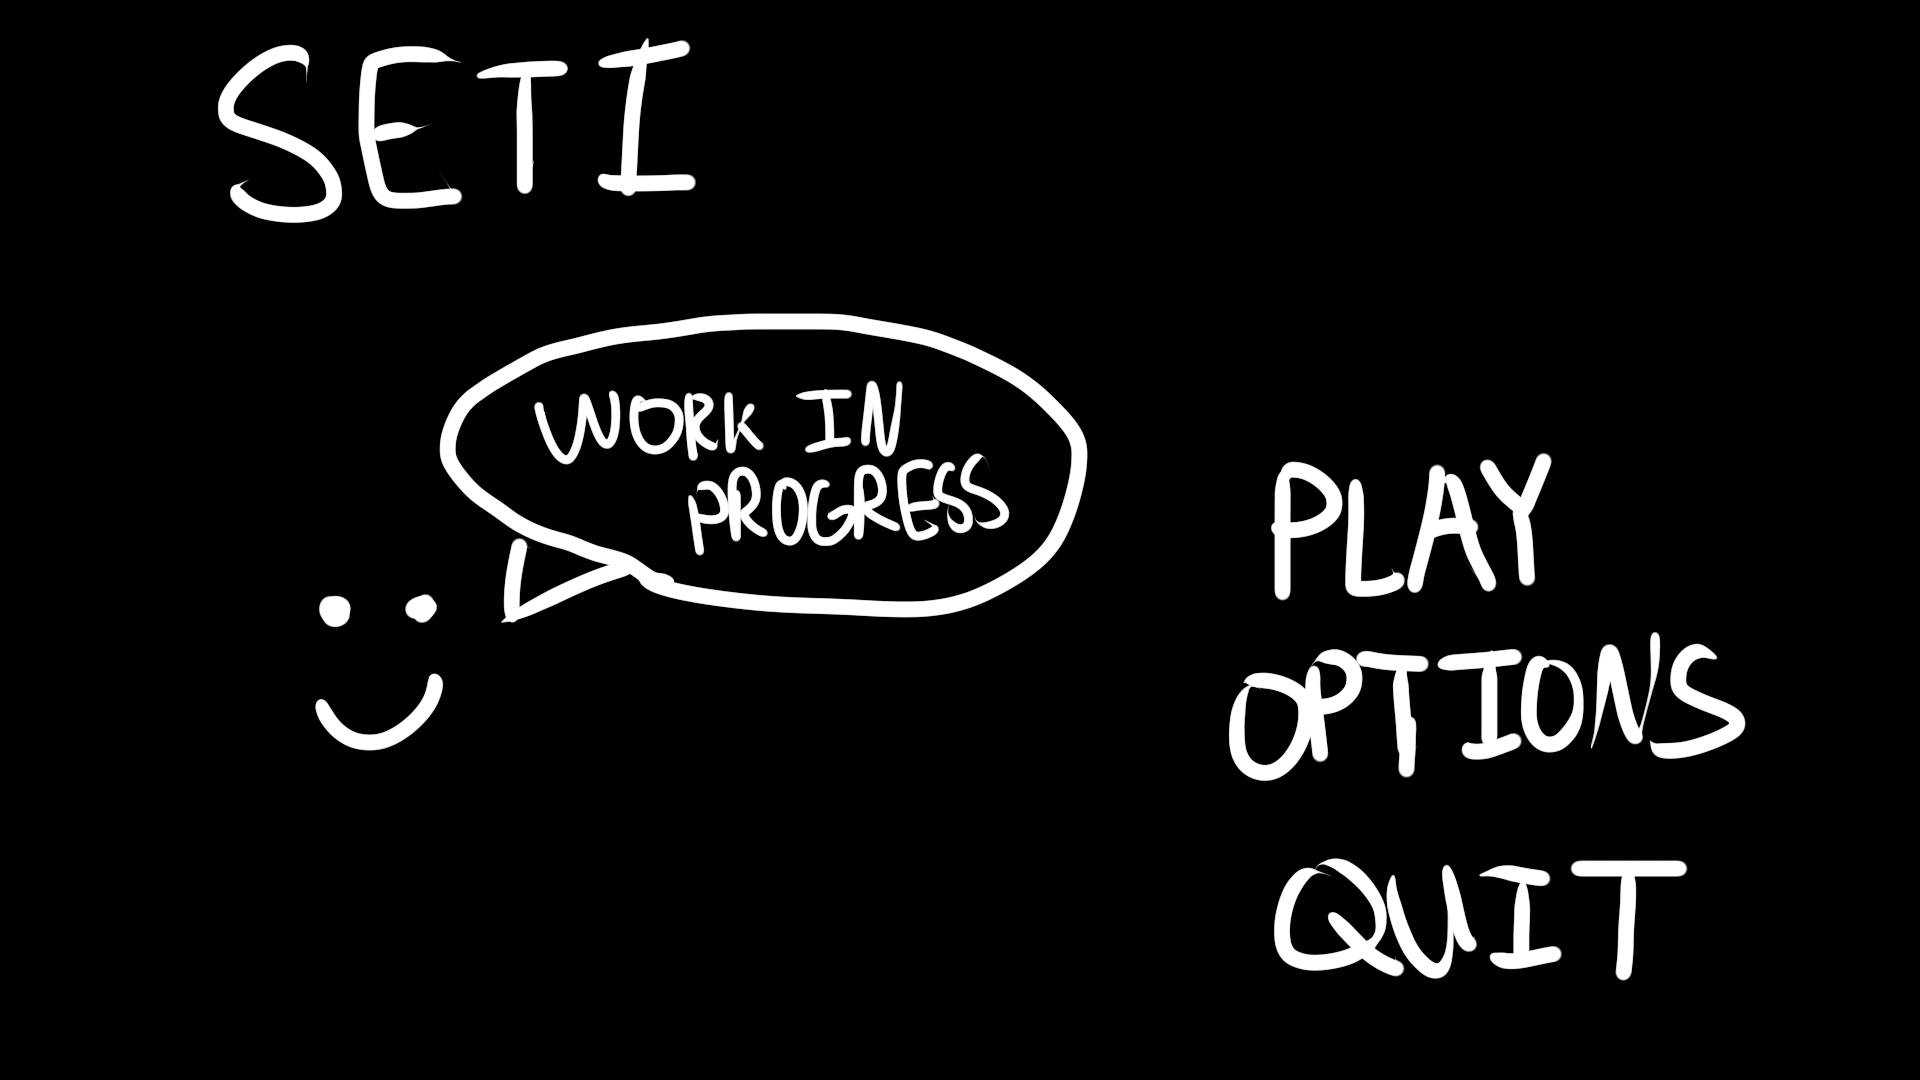 SETI
WORK IN
PROGRESS
PLAY
OPTIONS
QUIT